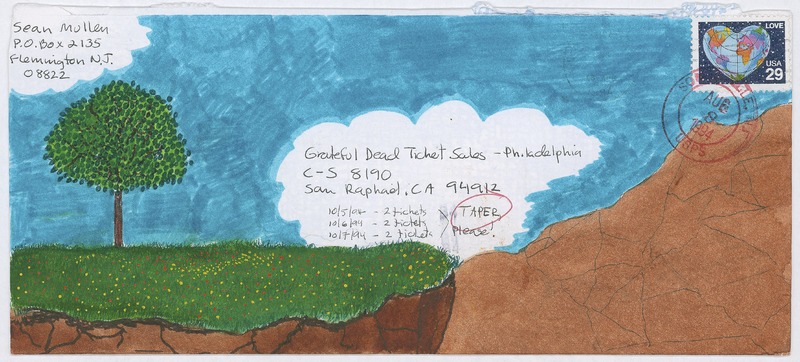 Sean Mullen
P.O. Box 2135
Flemington N.J.
08822
LOVE
USA
29
AUG
8
1994
USPS
Grateful Dead Ticket Sales - Philadelphia
C-S 8190
San Raphael, CA 94912
10/5/94 - 2 tickets
10/6/94 - 2 tickets
10/7/94 - 2 tickets
TAPER
Please!